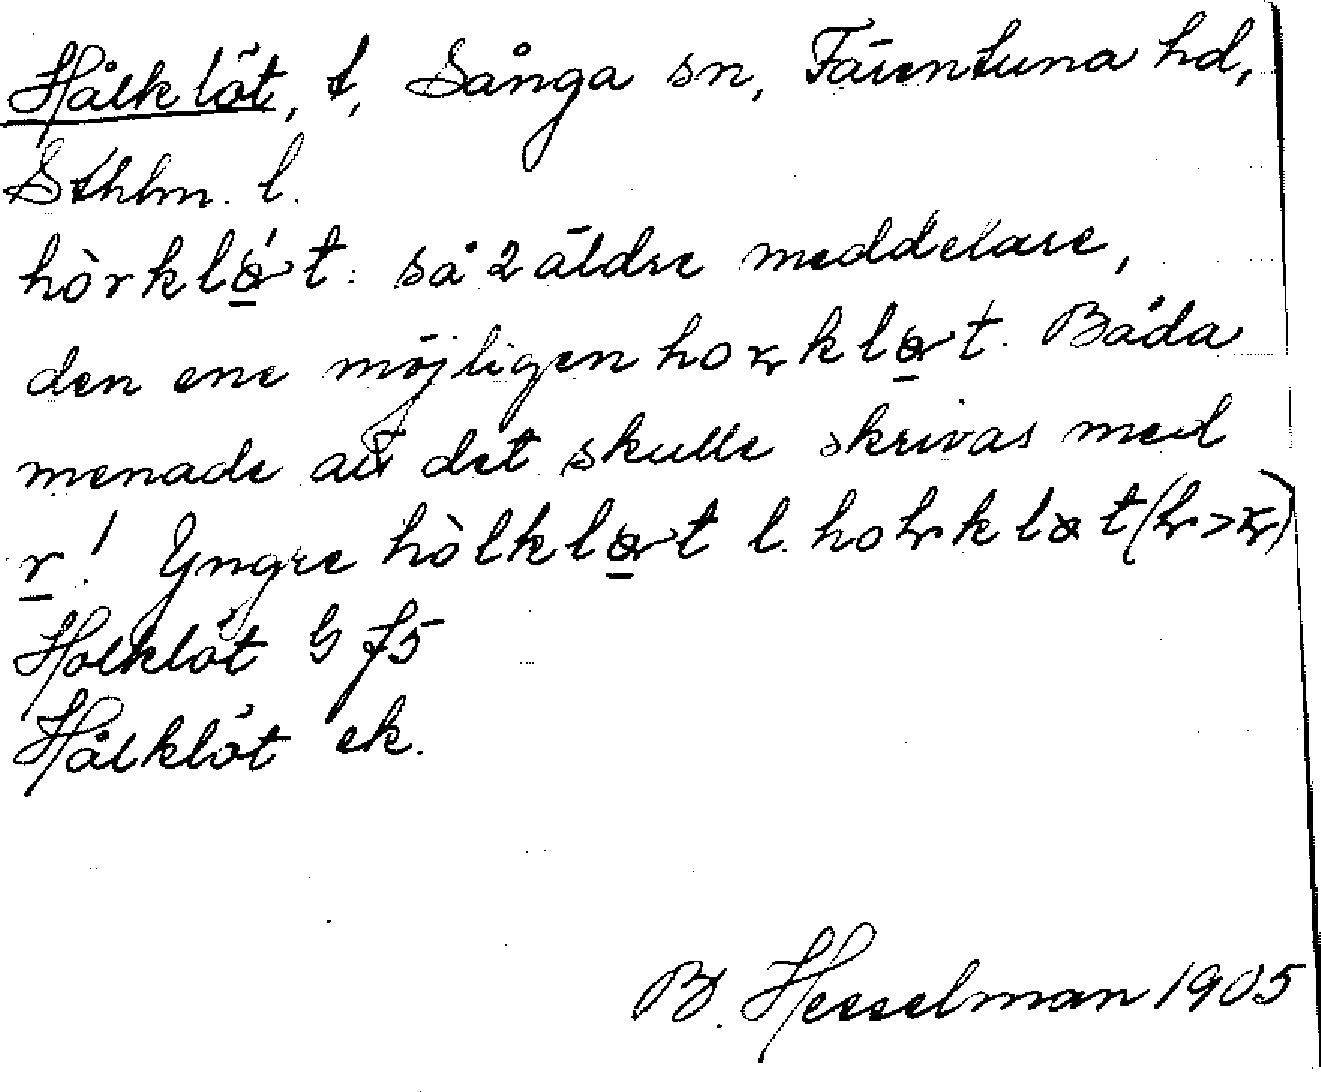 Hålklöt, t, Sånga sn, Färentuna hd,
Sthlm. l.
hòrklət: så 2 äldre meddelare,
den ene möjligen horklət. Båda
menade att det skulle skrivas med
r! Yngre hòlklət l. hohklət (h>r)
Holklöt G f5
Hålklöt ek.
B. Hesselman 1905